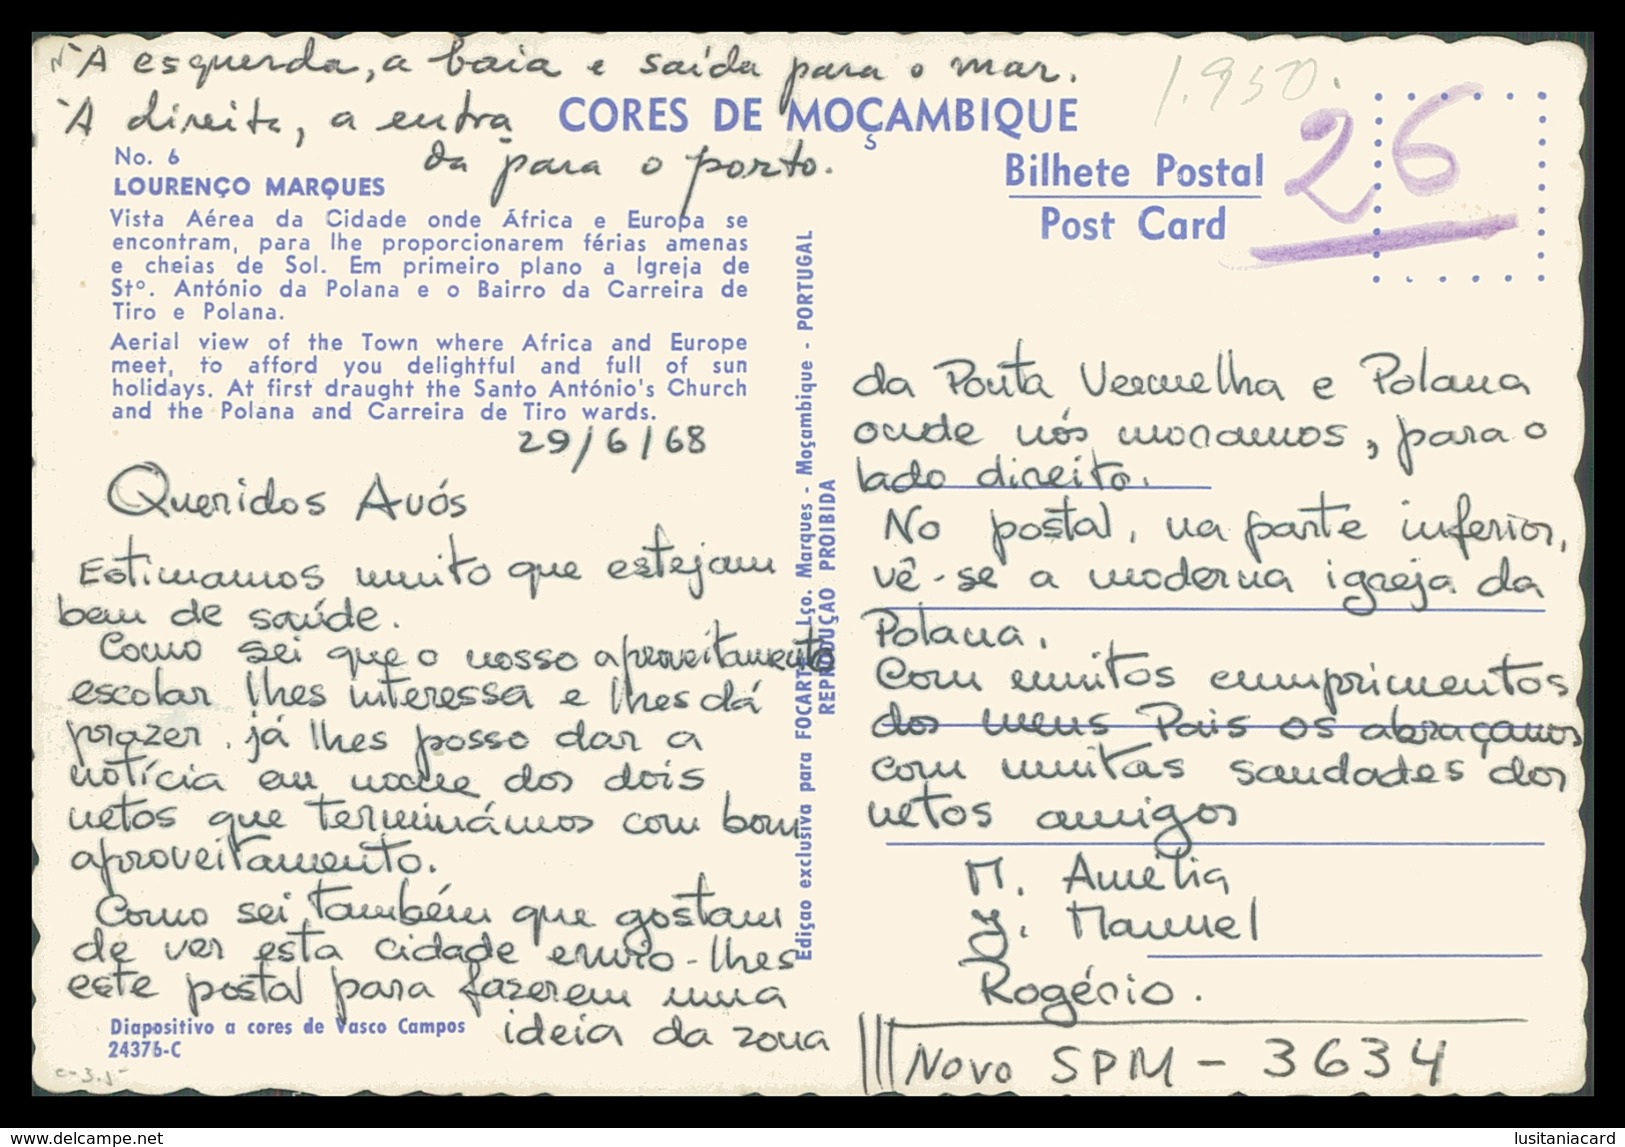 À esquerda, a baia e saída para o mar.
À direita, a entra
da para o porto.
CORES DE MOÇAMBIQUE
1.950.
26
Bilhete Postal
Post Card
No. 6
LOURENÇO MARQUES
Vista Aérea da Cidade onde África e Europa se
encontram, para lhe proporcionarem férias amenas
e cheias de Sol. Em primeiro plano a Igreja de
Stº. António da Polana e o Bairro da Carreira de
Tiro e Polana.
Aerial view of the Town where Africa and Europe
meet, to afford you delightful and full of sun
holidays. At first draught the Santo António's Church
and the Polana and Carreira de Tiro wards.
29/6/68
Queridos Avós
Estimamos muito que estejam
bem de saúde.
Como sei que o nosso aproveitamento
escolar lhes interessa e lhes dá
prazer, já lhes posso dar a
notícia em nome dos dois
netos que terminámos com bom
aproveitamento.
Como sei também que gostam
de ver esta cidade envio-lhes
este postal para fazerem uma
ideia da zona
Diapositivo a cores de Vasco Campos
24376-C
Edição exclusiva para FOCARTE Lço. Marques - Moçambique - PORTUGAL
REPRODUÇÃO PROIBIDA
da Ponta Vermelha e Polana
onde nós moramos, para o
lado direito.
No postal, na parte inferior,
vê-se a moderna igreja da
Polana.
Com muitos cumprimentos
dos meus Pais os abraçamos
com muitas saudades dos
netos amigos
M. Amélia
J. Manuel
Rogério.
Novo SPM - 3634
www.delcampe.net
lusitaniacard